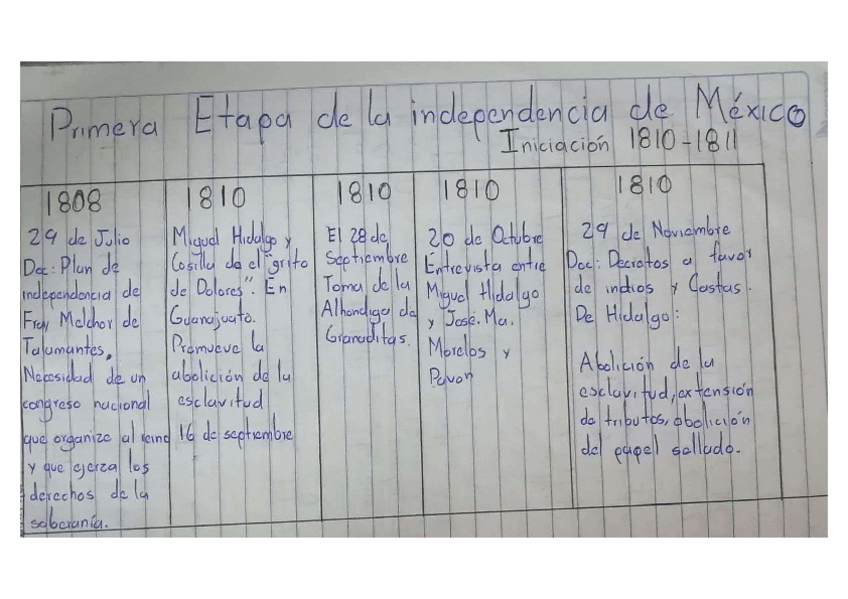 Primera Etapa de la independencia de México
Iniciación 1810-1811
1808
29 de Julio
Doc: Plan de
independencia de
Fray Melchor de
Talamantes.
Necesidad de un
congreso nacional
que organize al reino
y que ejerza los
derechos de la
soberanía.
1810
Miguel Hidalgo y
Costilla da el "grito
de Dolores". En
Guanajuato.
Promueve la
abolición de la
esclavitud
16 de septiembre
1810
El 28 de
Septiembre
Toma de la
Alhondiga de
Granaditas.
1810
20 de Octubre
Entrevista entre
Miguel Hidalgo
y José. Ma.
Morelos y
Pavon
1810
29 de Noviembre
Doc: Decretos a favor
de indios y Castas.
De Hidalgo:
Abolición de la
esclavitud, extensión
de tributos, abolición
del papel sellado.